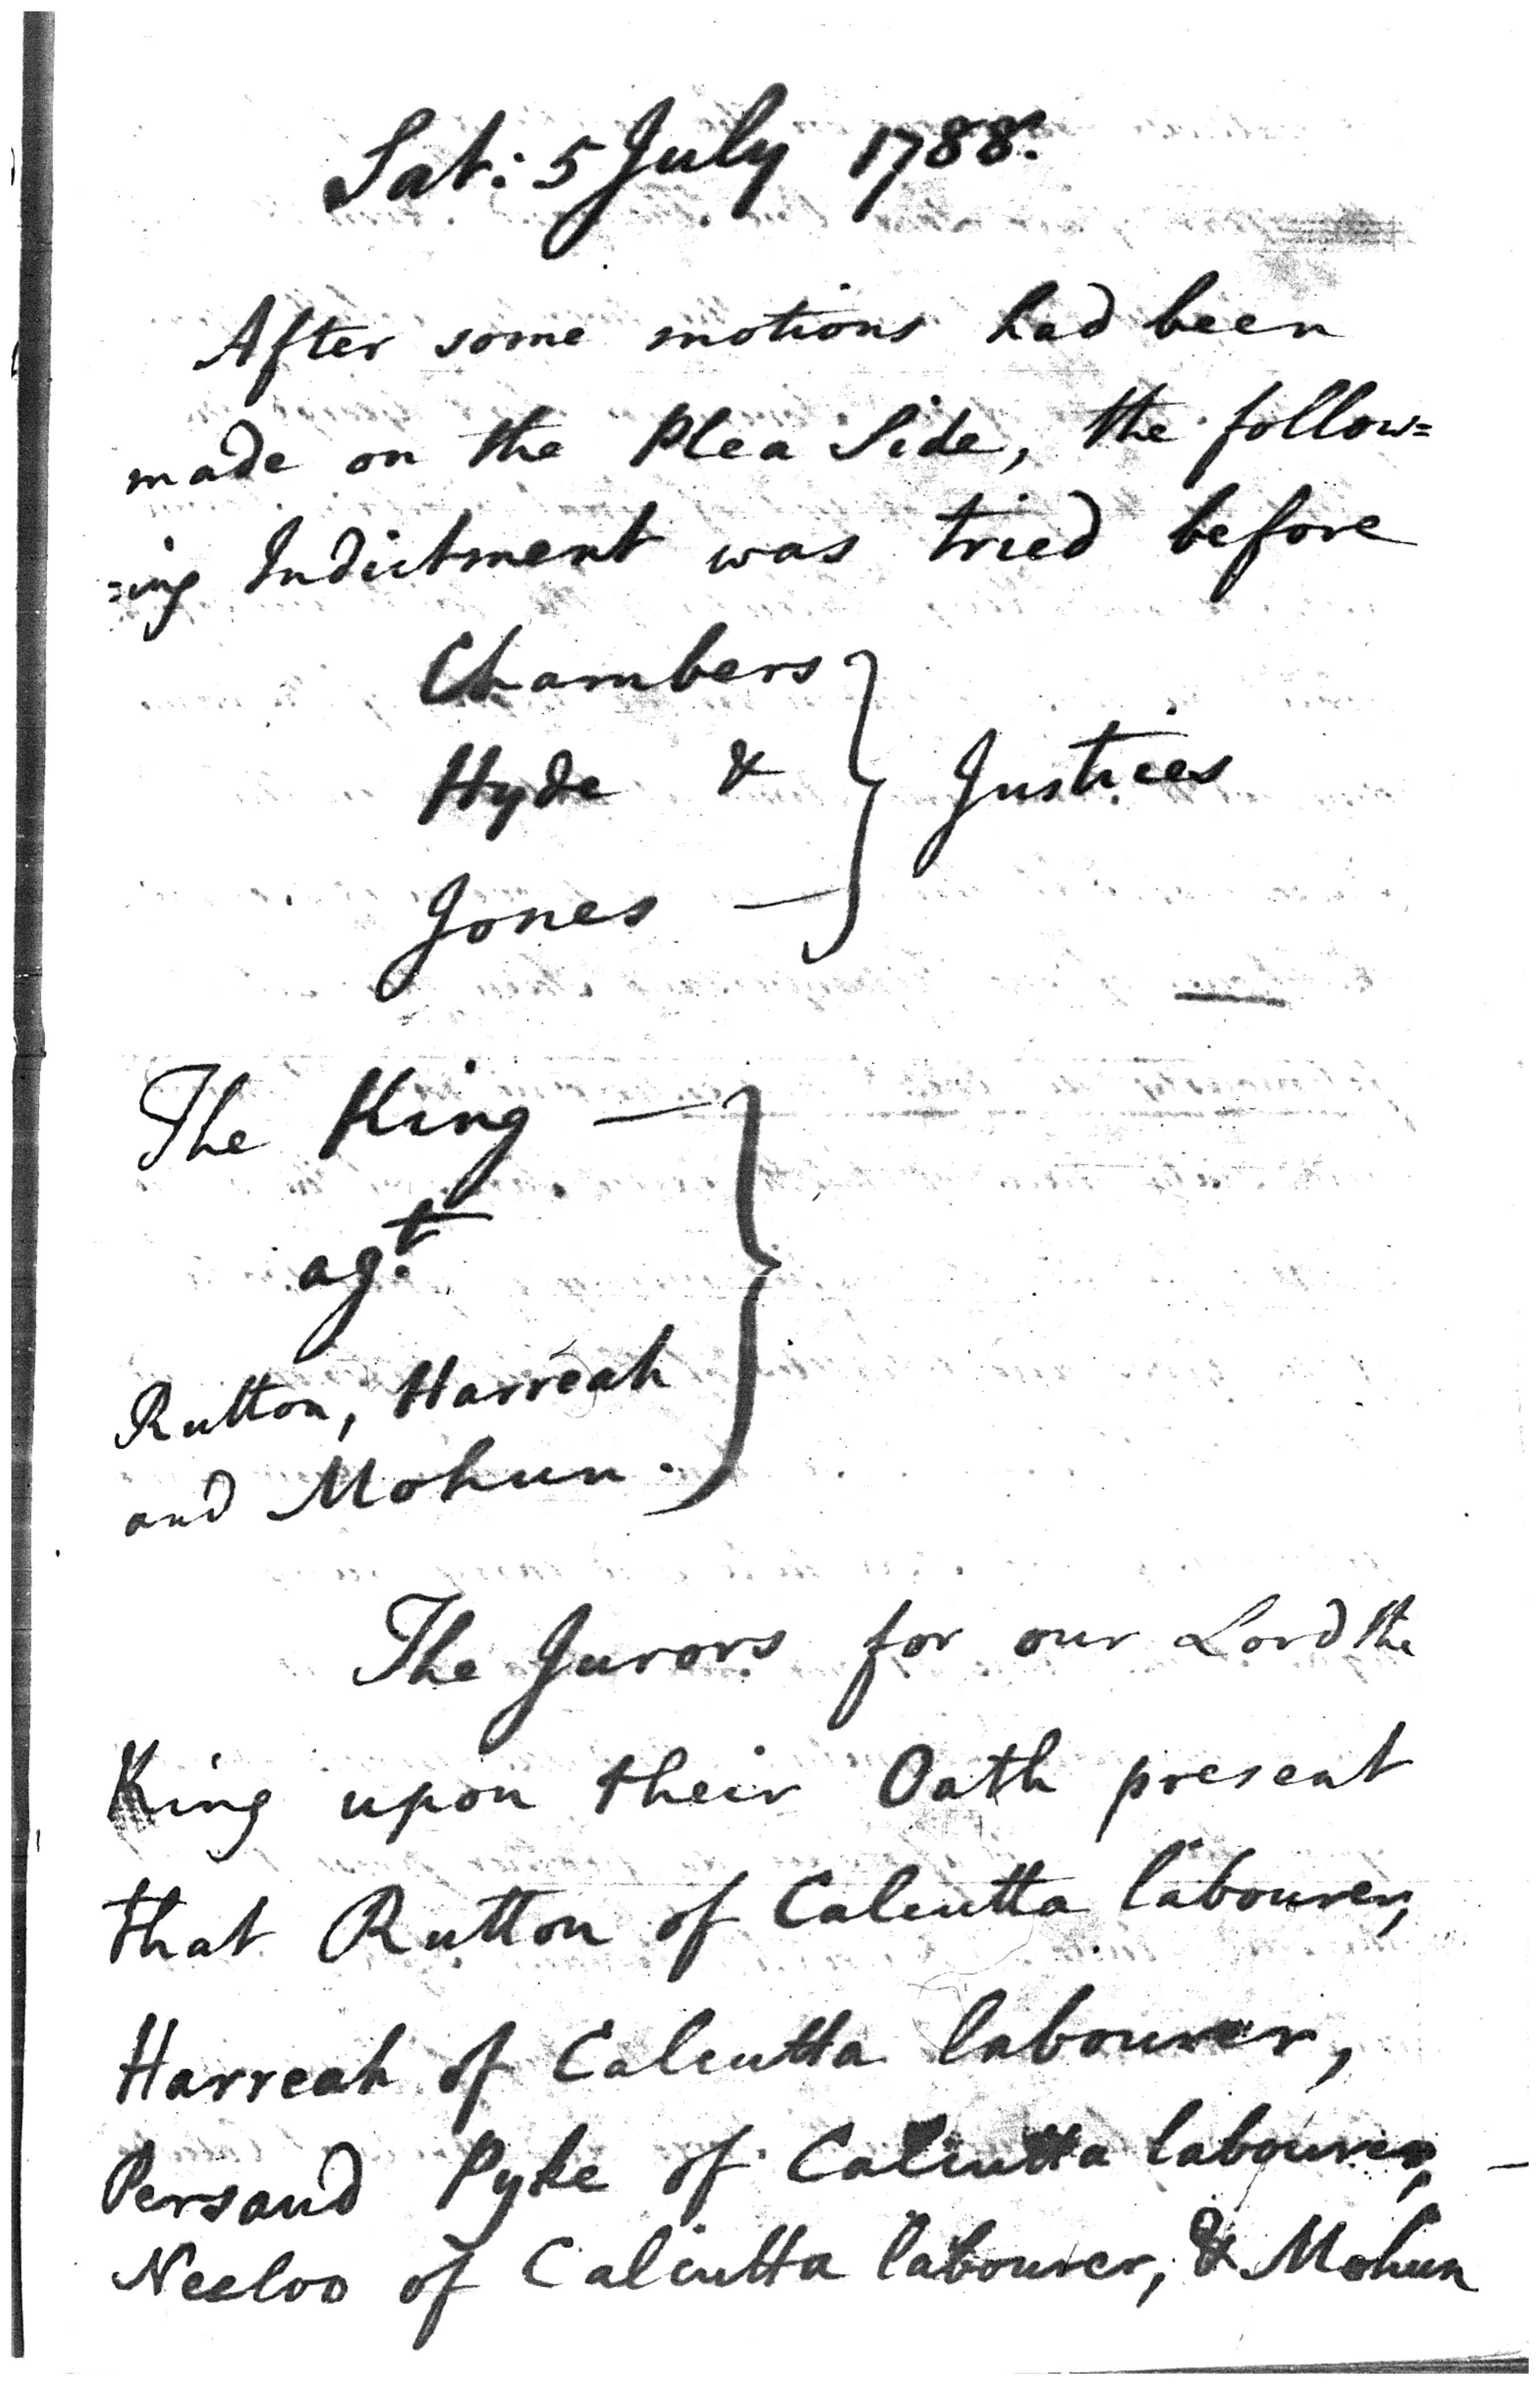 Sat: 5 July 1788.
After some motions had been
made on the Plea Side, the follow=
=ing Indictment was tried before
Chambers
Hyde & } Justices
Jones —
The King —
agt.
Rutton, Harreah
and Mohun.
The Jurors for our Lord the
King upon their Oath present
that Rutton of Calcutta labourer,
Harreah of Calcutta labourer,
Persaud Pyke of Calcutta labourer, —
Neeloo of Calcutta labourer, & Mohun